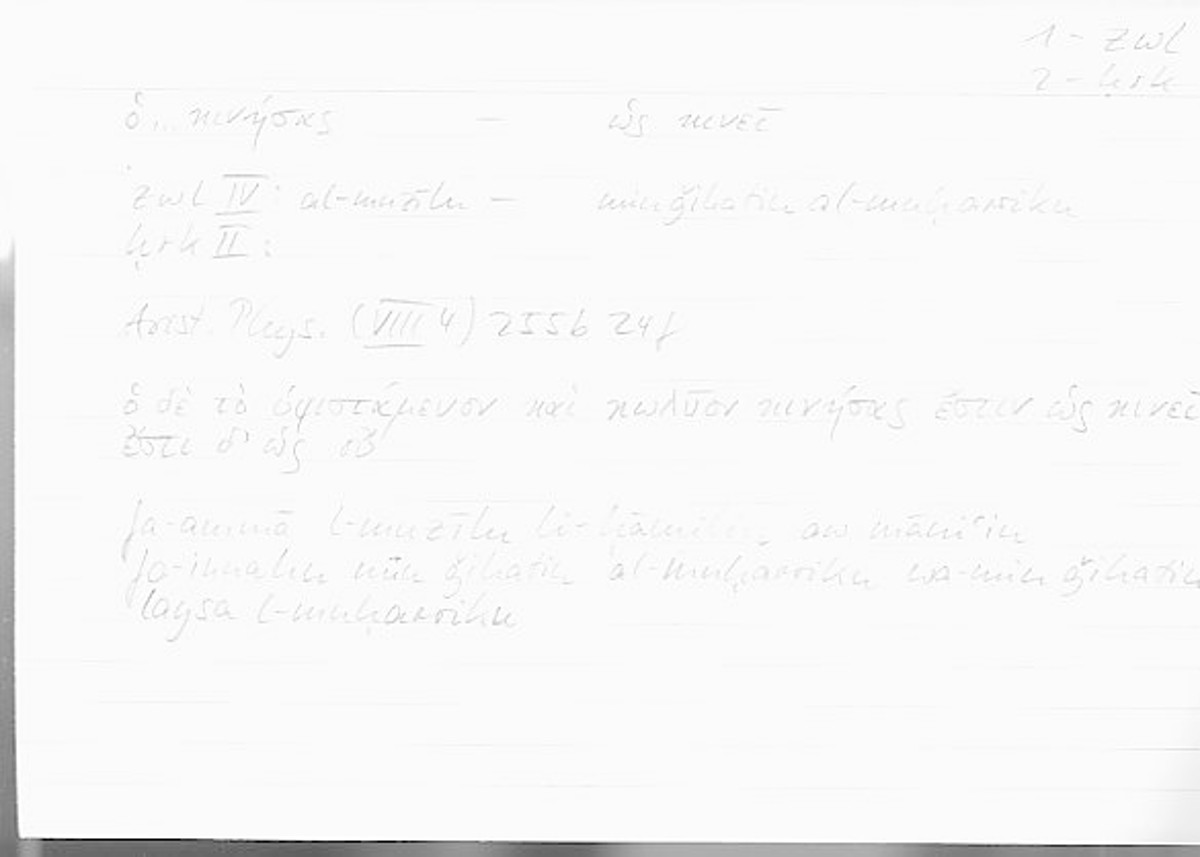 1 - zwl
2 - ḥrk
ὁ... κινήσας — ὡς κινεῖ
zwl IV: al-muzīlu — min ǧihatin al-muḥarriku
ḥrk II:
Arist. Phys. (VIII 4) 255b 24f
ὁ δὲ τὸ ὑφιστάμενον καὶ κωλῦον κινήσας ἔστιν ὡς κινεῖ
ἔστι δ' ὡς οὔ
fa-ammā l-muzīlu li- aw māniʿin
fa-innahu min ǧihatin al-muḥarriku wa-min ǧihatin
laysa l-muḥarriku